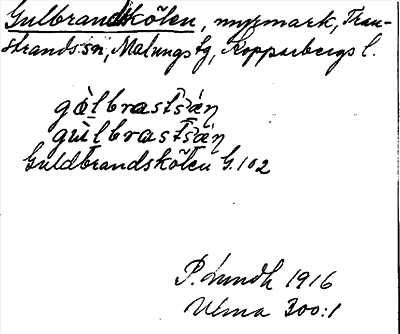 Gulbrandskölen, myrmark, Tran-
strands sn, Malungs tg, Kopparbergs l.
gòlbrastsǻn
gùlbrastsǻn
Guldbrandskölen G. 102
P. Lundh 1916
Ulma 300:1